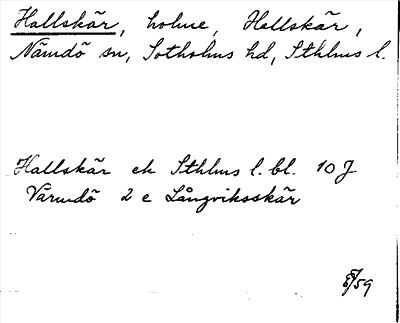 Hallskär, holme, Hallskär,
Nämdö sn, Sotholms hd, Sthlms l.
Hallskär ek Sthlms l. bl. 10 J
Värmdö 2 e Långviksskär
/59